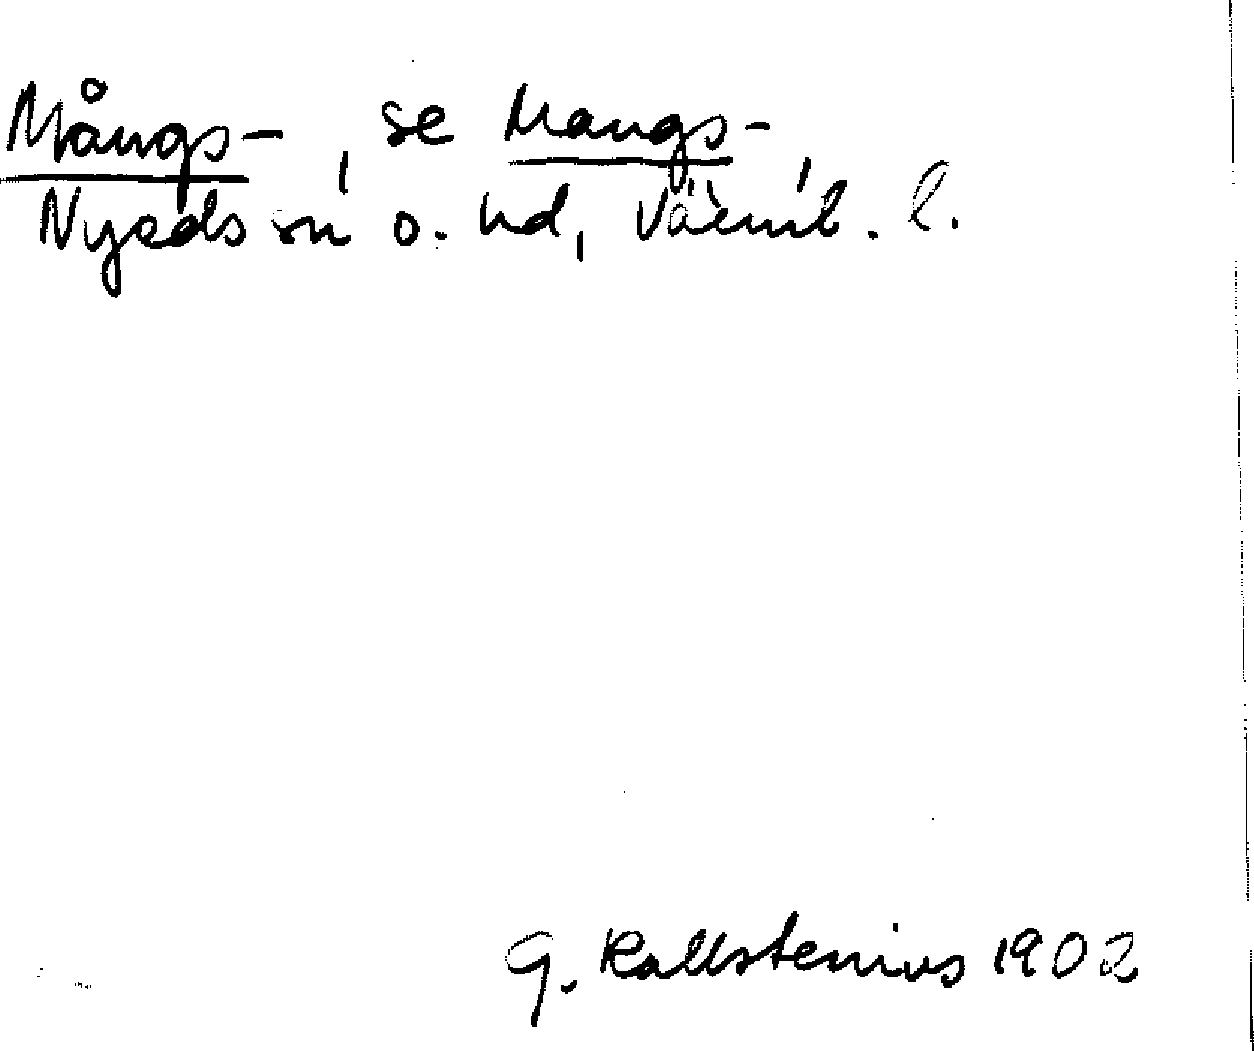 Mångs-, se Mangs-
Nyeds sn o. hd, Värml. l.
G. Kallstenius 1902